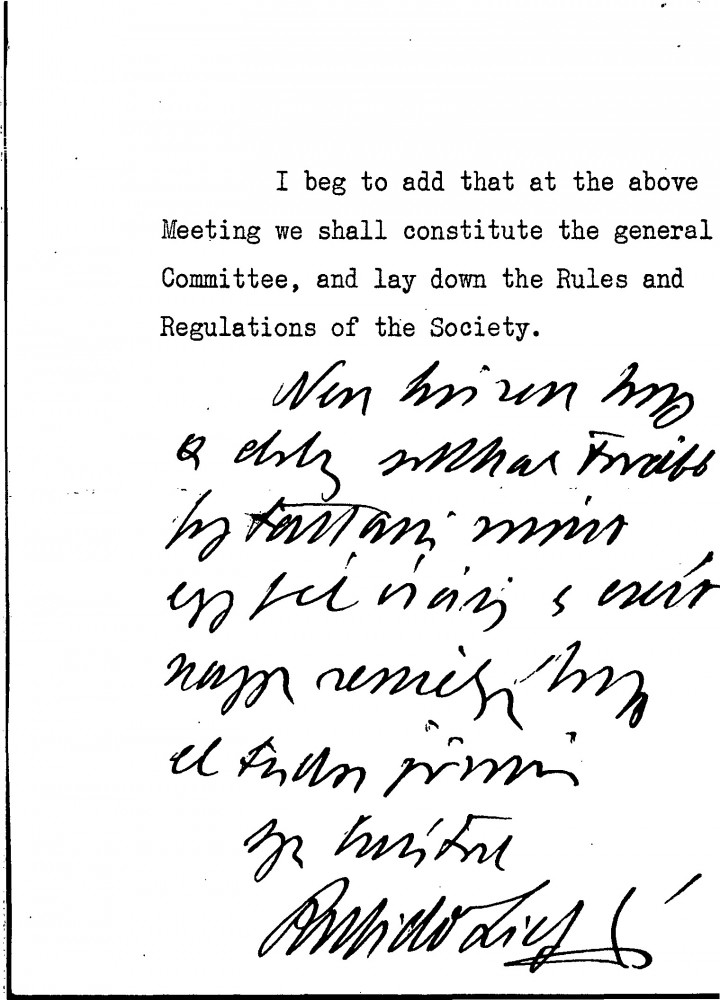 I beg to add that at the above
Meeting we shall constitute the general
Committee, and lay down the Rules and
Regulations of the Society.
Nem hiszem hogy
a dolog sokkal tovább
fog tartani mint
egy fél óráig s ezért
nagyon remélem hogy
el tudsz jönni